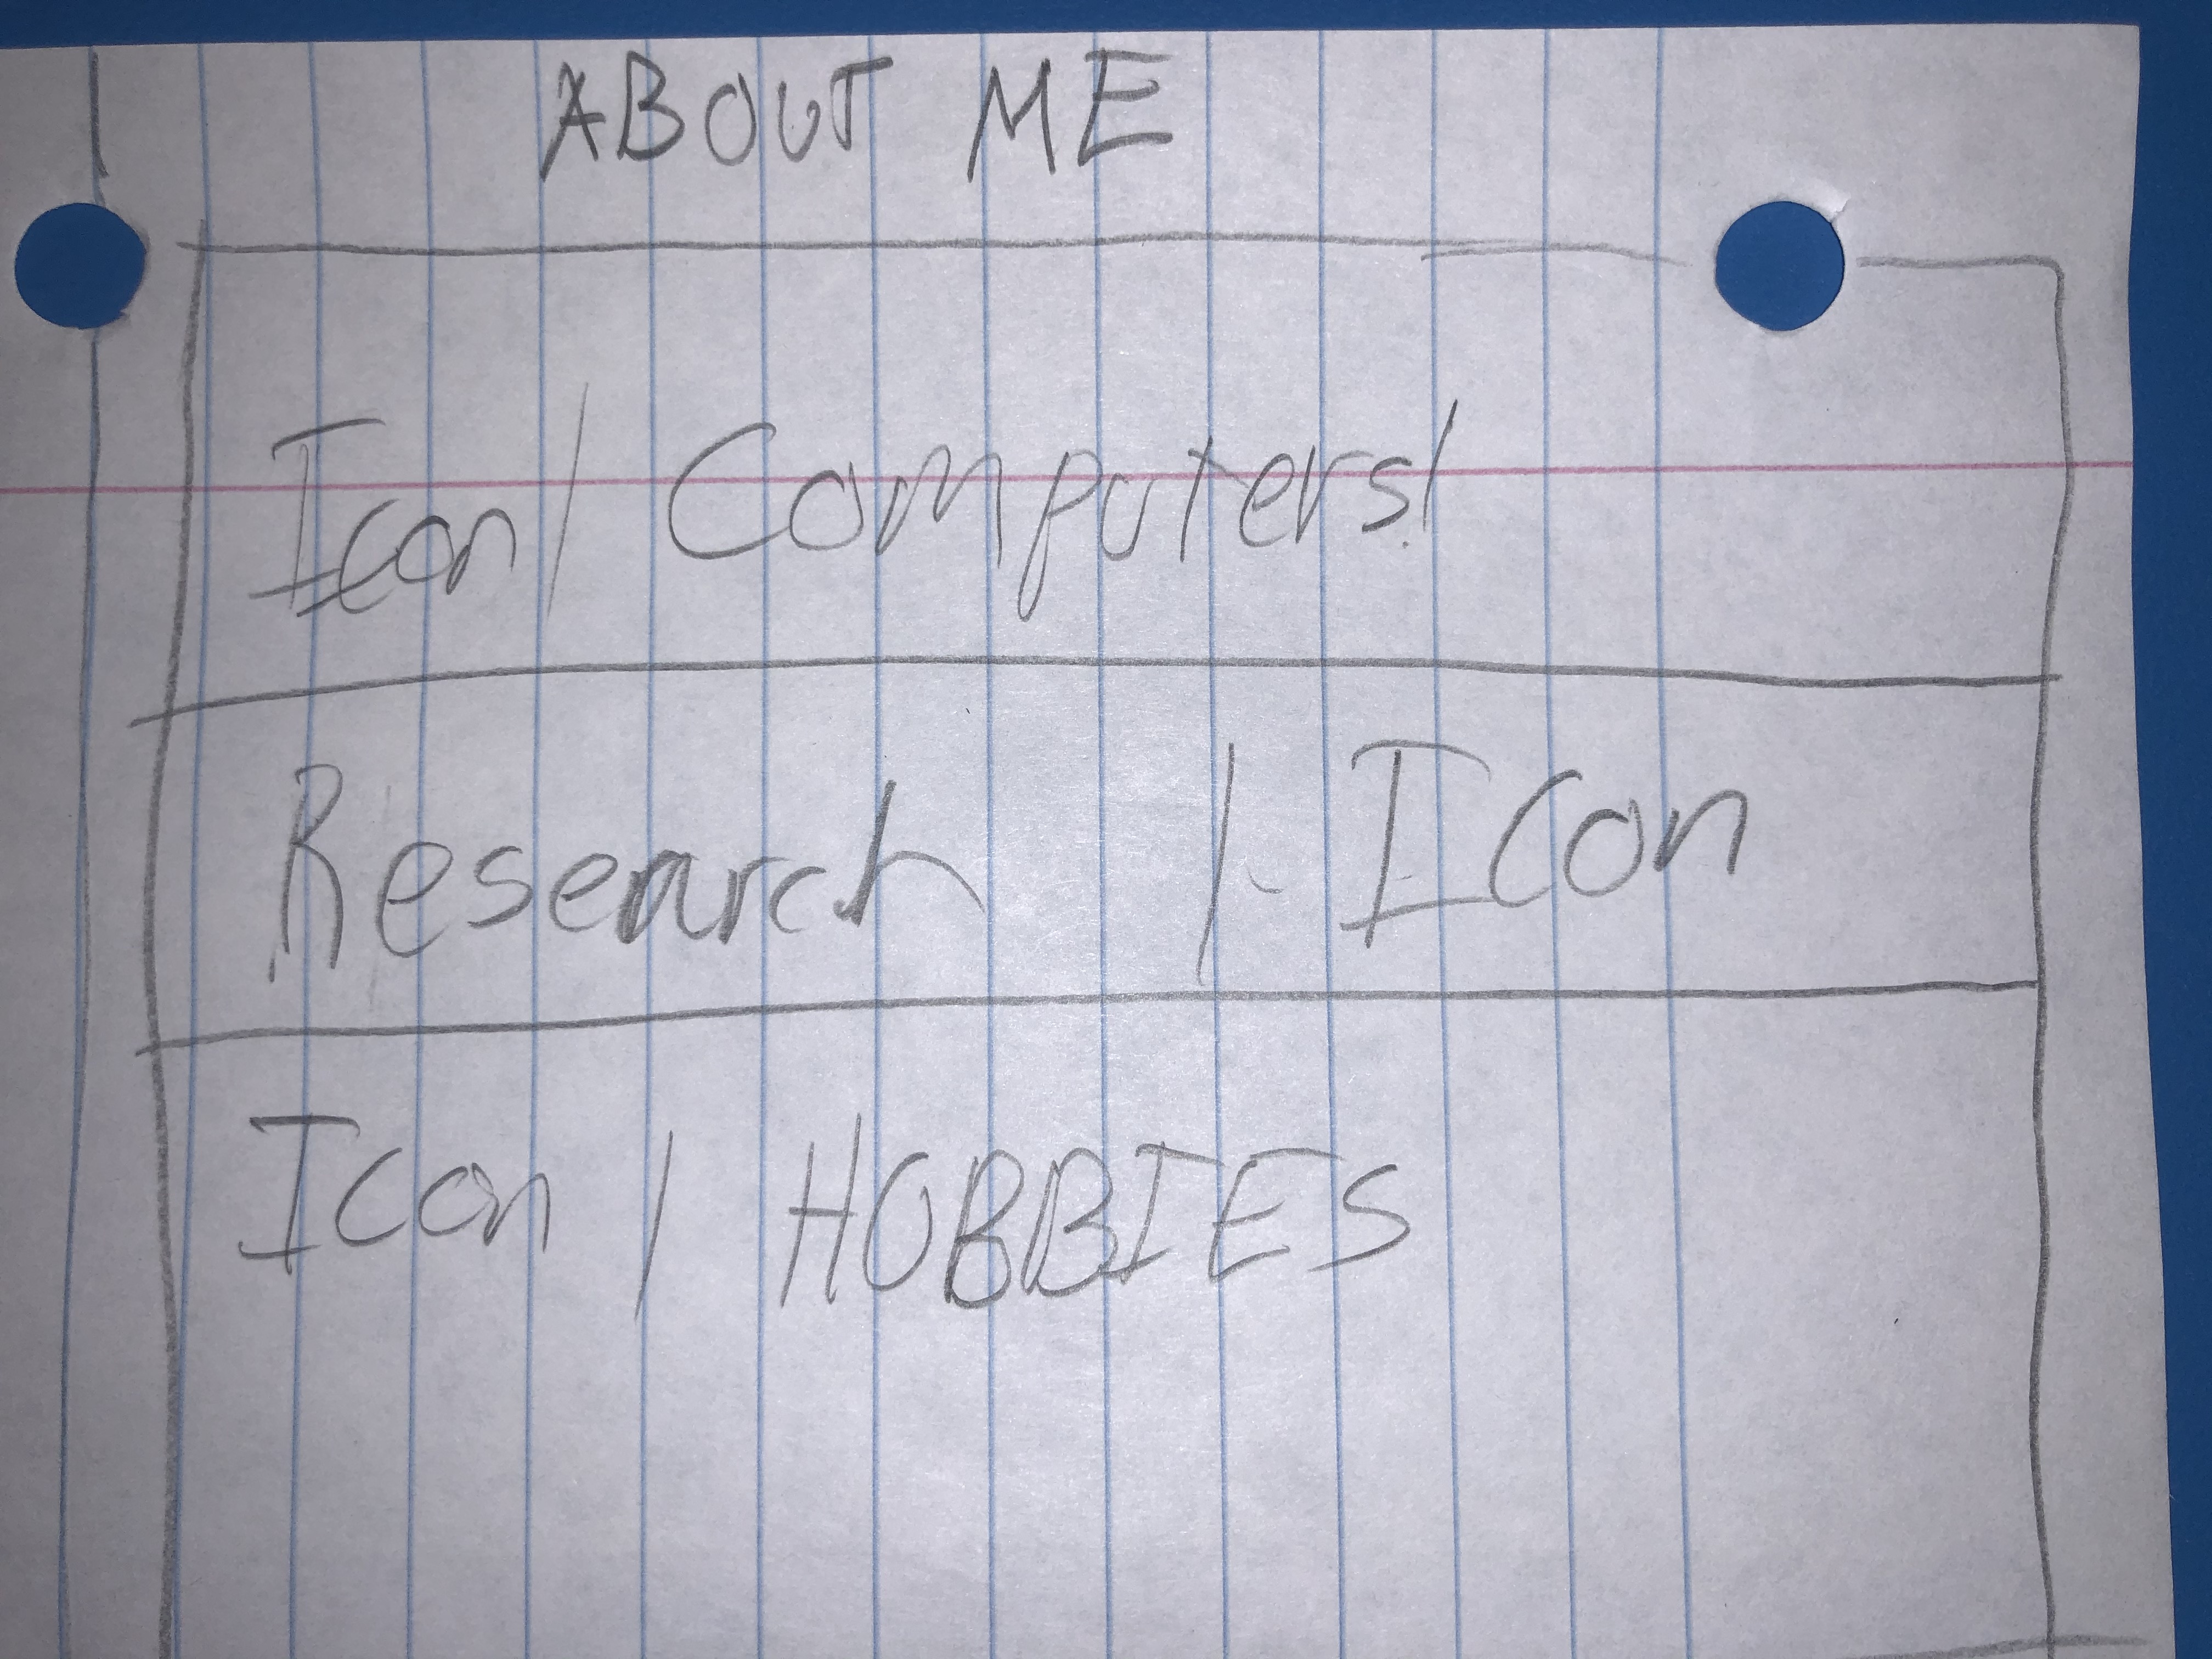 ABOUT ME
Icon | Computers!
Research | Icon
Icon | HOBBIES